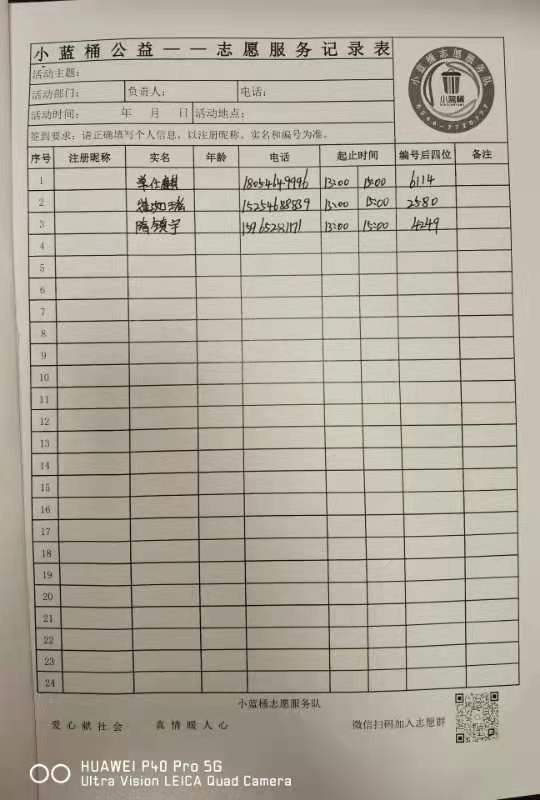 小蓝桶公益——志愿服务记录表
活动主题:
活动部门: 负责人: 电话:
活动时间: 年 月 日 活动地点:
签到要求: 请正确填写个人信息, 以注册昵称、实名和编号为准。
小蓝桶志愿服务队
小蓝桶
0546-7720177
序号 注册昵称 实名 年龄 电话 起止时间 编号后四位 备注
1 单仕麒 18054649996 13:00 15:00 6114
2 15254688839 13:00 15:00 2580
3 隋镇宇 15965281171 13:00 15:00 4249
4
5
6
7
8
9
10
11
12
13
14
15
16
17
18
19
20
21
22
23
24
小蓝桶志愿服务队
爱心献社会 真情暖人心 微信扫码加入志愿群
HUAWEI P40 Pro 5G
Ultra Vision LEICA Quad Camera